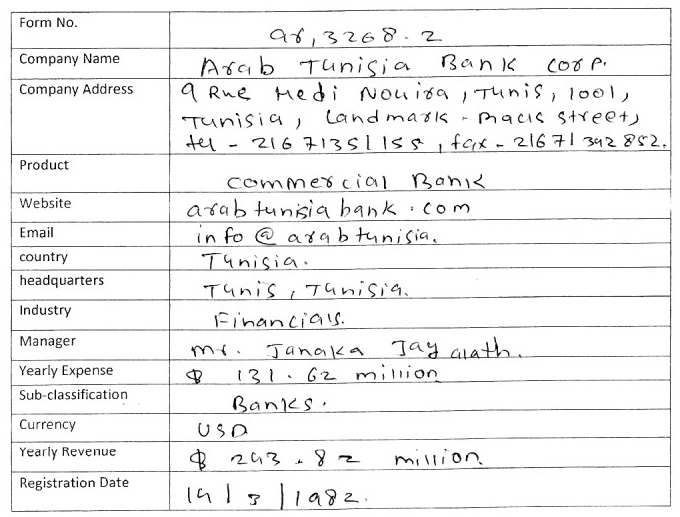 Form No. 98,3268.2
Company Name Arab Tunisia Bank Corp.
Company Address 9 Rue Hedi Nouira, Tunis, 1001,
Tunisia, Landmark - Macis street,
tel - 216 71351155, fax - 21671 342 852.
Product Commercial Bank
Website arabtunisiabank.com
Email info@arabtunisia.
country Tunisia.
headquarters Tunis, Tunisia.
Industry Financials.
Manager Mr. Janaka Jay alath.
Yearly Expense $ 131.62 million
Sub-classification Banks.
Currency USD
Yearly Revenue $ 243.82 million.
Registration Date 14/3/1982.